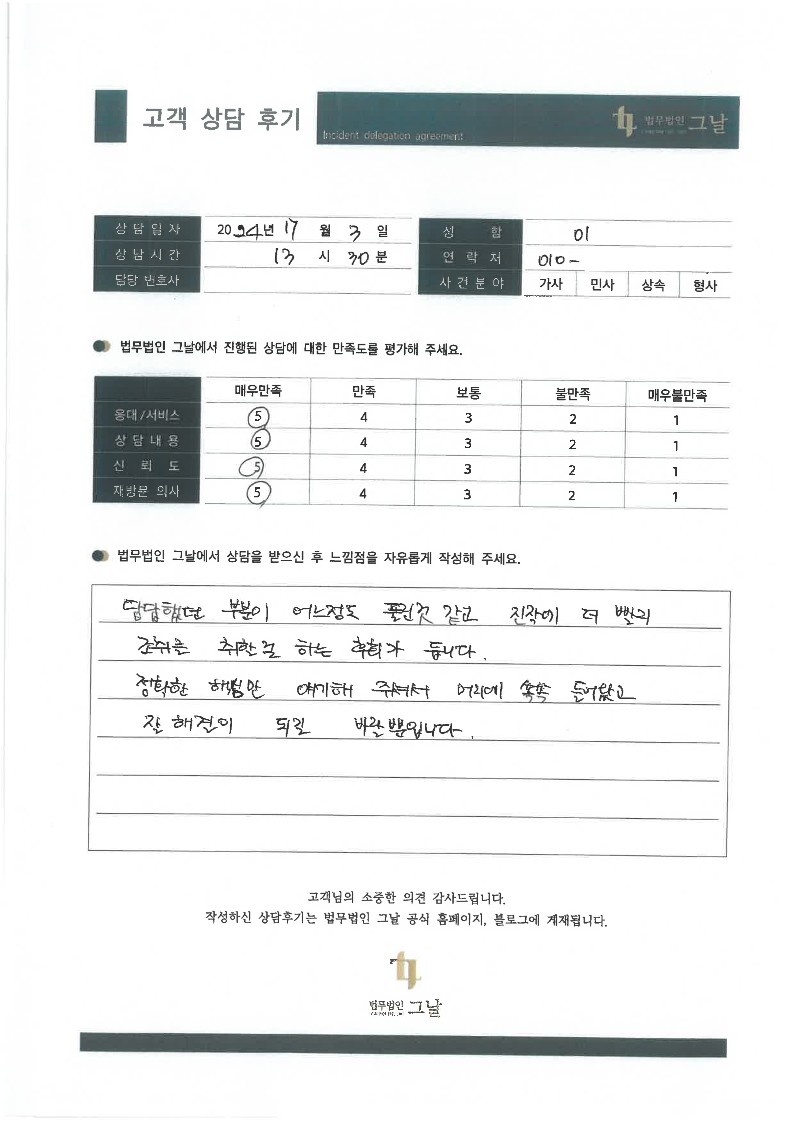 고객 상담 후기
Incident delegation agreement
법무법인 그날
상담일자 2024년 17월 3일 성 함 이
상담시간 13시 30분 연 락 처 010-
담당 변호사 사건분야 가사 민사 상속 형사
법무법인 그날에서 진행된 상담에 대한 만족도를 평가해 주세요.
매우만족 만족 보통 불만족 매우불만족
응대/서비스 5 4 3 2 1
상담내용 5 4 3 2 1
신 뢰 도 5 4 3 2 1
재방문 의사 5 4 3 2 1
법무법인 그날에서 상담을 받으신 후 느낌점을 자유롭게 작성해 주세요.
답답했던 부분이 어느정도 풀린것 같고 진작에 더 빨리
조취를 취할걸 하는 후회가 듭니다.
정확한 핵심만 얘기해 주셔서 머리에 쏙쏙 들어왔고
잘 해결이 되길 바랄뿐입니다.
고객님의 소중한 의견 감사드립니다.
작성하신 상담후기는 법무법인 그날 공식 홈페이지, 블로그에 게재됩니다.
법무법인 그날